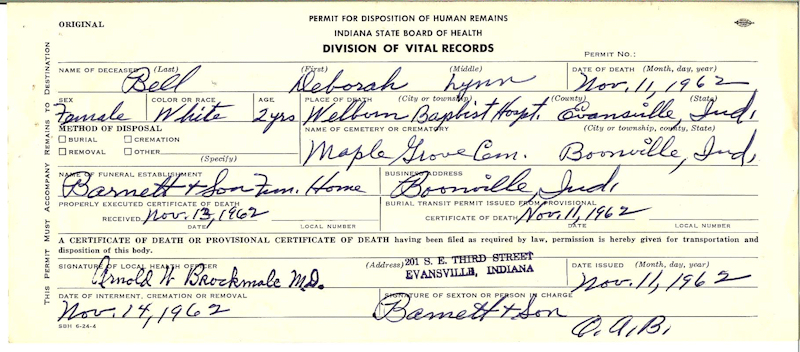 ORIGINAL
PERMIT FOR DISPOSITION OF HUMAN REMAINS
INDIANA STATE BOARD OF HEALTH
DIVISION OF VITAL RECORDS
PERMIT NO.:
THIS PERMIT MUST ACCOMPANY REMAINS TO DESTINATION
NAME OF DECEASED (Last) (First) (Middle) DATE OF DEATH (Month, day, year)
Bell Deborah Lynn Nov. 11, 1962
SEX COLOR OR RACE AGE PLACE OF DEATH (City or township) (County) (State)
Female White 2 yrs Welburn Baptist Hospt. Evansville, Ind.
METHOD OF DISPOSAL NAME OF CEMETERY OR CREMATORY (City or township, county, State)
BURIAL CREMATION
REMOVAL OTHER (Specify)
Maple Grove Cem. Boonville, Ind.
NAME OF FUNERAL ESTABLISHMENT BUSINESS ADDRESS
Barnett + Son Fun. Home Boonville, Ind.
PROPERLY EXECUTED CERTIFICATE OF DEATH BURIAL TRANSIT PERMIT ISSUED FROM PROVISIONAL
RECEIVED Nov. 13, 1962 CERTIFICATE OF DEATH Nov. 11, 1962
DATE LOCAL NUMBER DATE LOCAL NUMBER
A CERTIFICATE OF DEATH OR PROVISIONAL CERTIFICATE OF DEATH having been filed as required by law, permission is hereby given for transportation and
disposition of this body.
SIGNATURE OF LOCAL HEALTH OFFICER (Address) 201 S. E. THIRD STREET DATE ISSUED (Month, day, year)
Arnold W Brockmole M.D. EVANSVILLE, INDIANA Nov. 11, 1962
DATE OF INTERMENT, CREMATION OR REMOVAL SIGNATURE OF SEXTON OR PERSON IN CHARGE
Nov. 14, 1962 Barnett + Son
O.A.B.
SBH 6-24-4